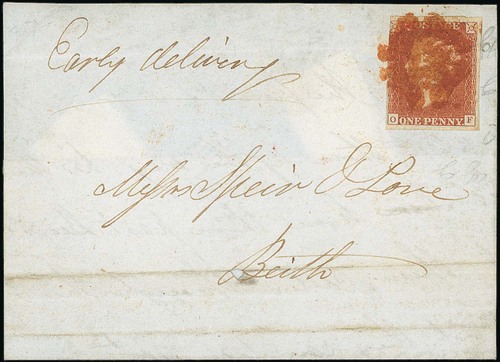 Early delivery
POSTAGE
O ONE PENNY F
Messrs Speir & Love
Beith